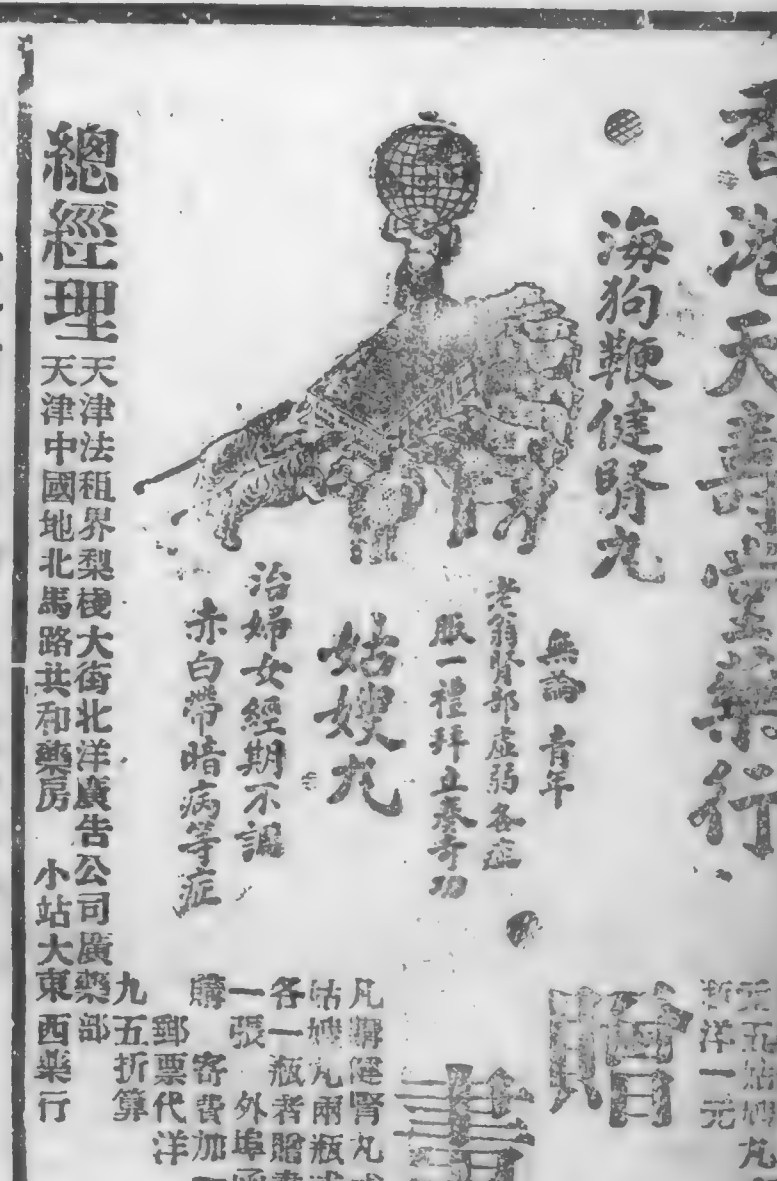 香港天壽堂藥行
海狗鞭健腎丸
無論 青年
老翁腎部虛弱各症
服一禮拜立奏奇功
姑嫂丸
治婦女經期不調
赤白帶暗病等症
洋一元
贈
書
凡購健腎丸
姑嫂丸兩瓶或
各一瓶者贈書
一張 外埠函
購 寄費加一
郵票代洋
九五折算
總經理
天津法租界梨棧大街北洋廣告公司廣藥部
天津中國地北馬路共和藥房 小站大東西藥行